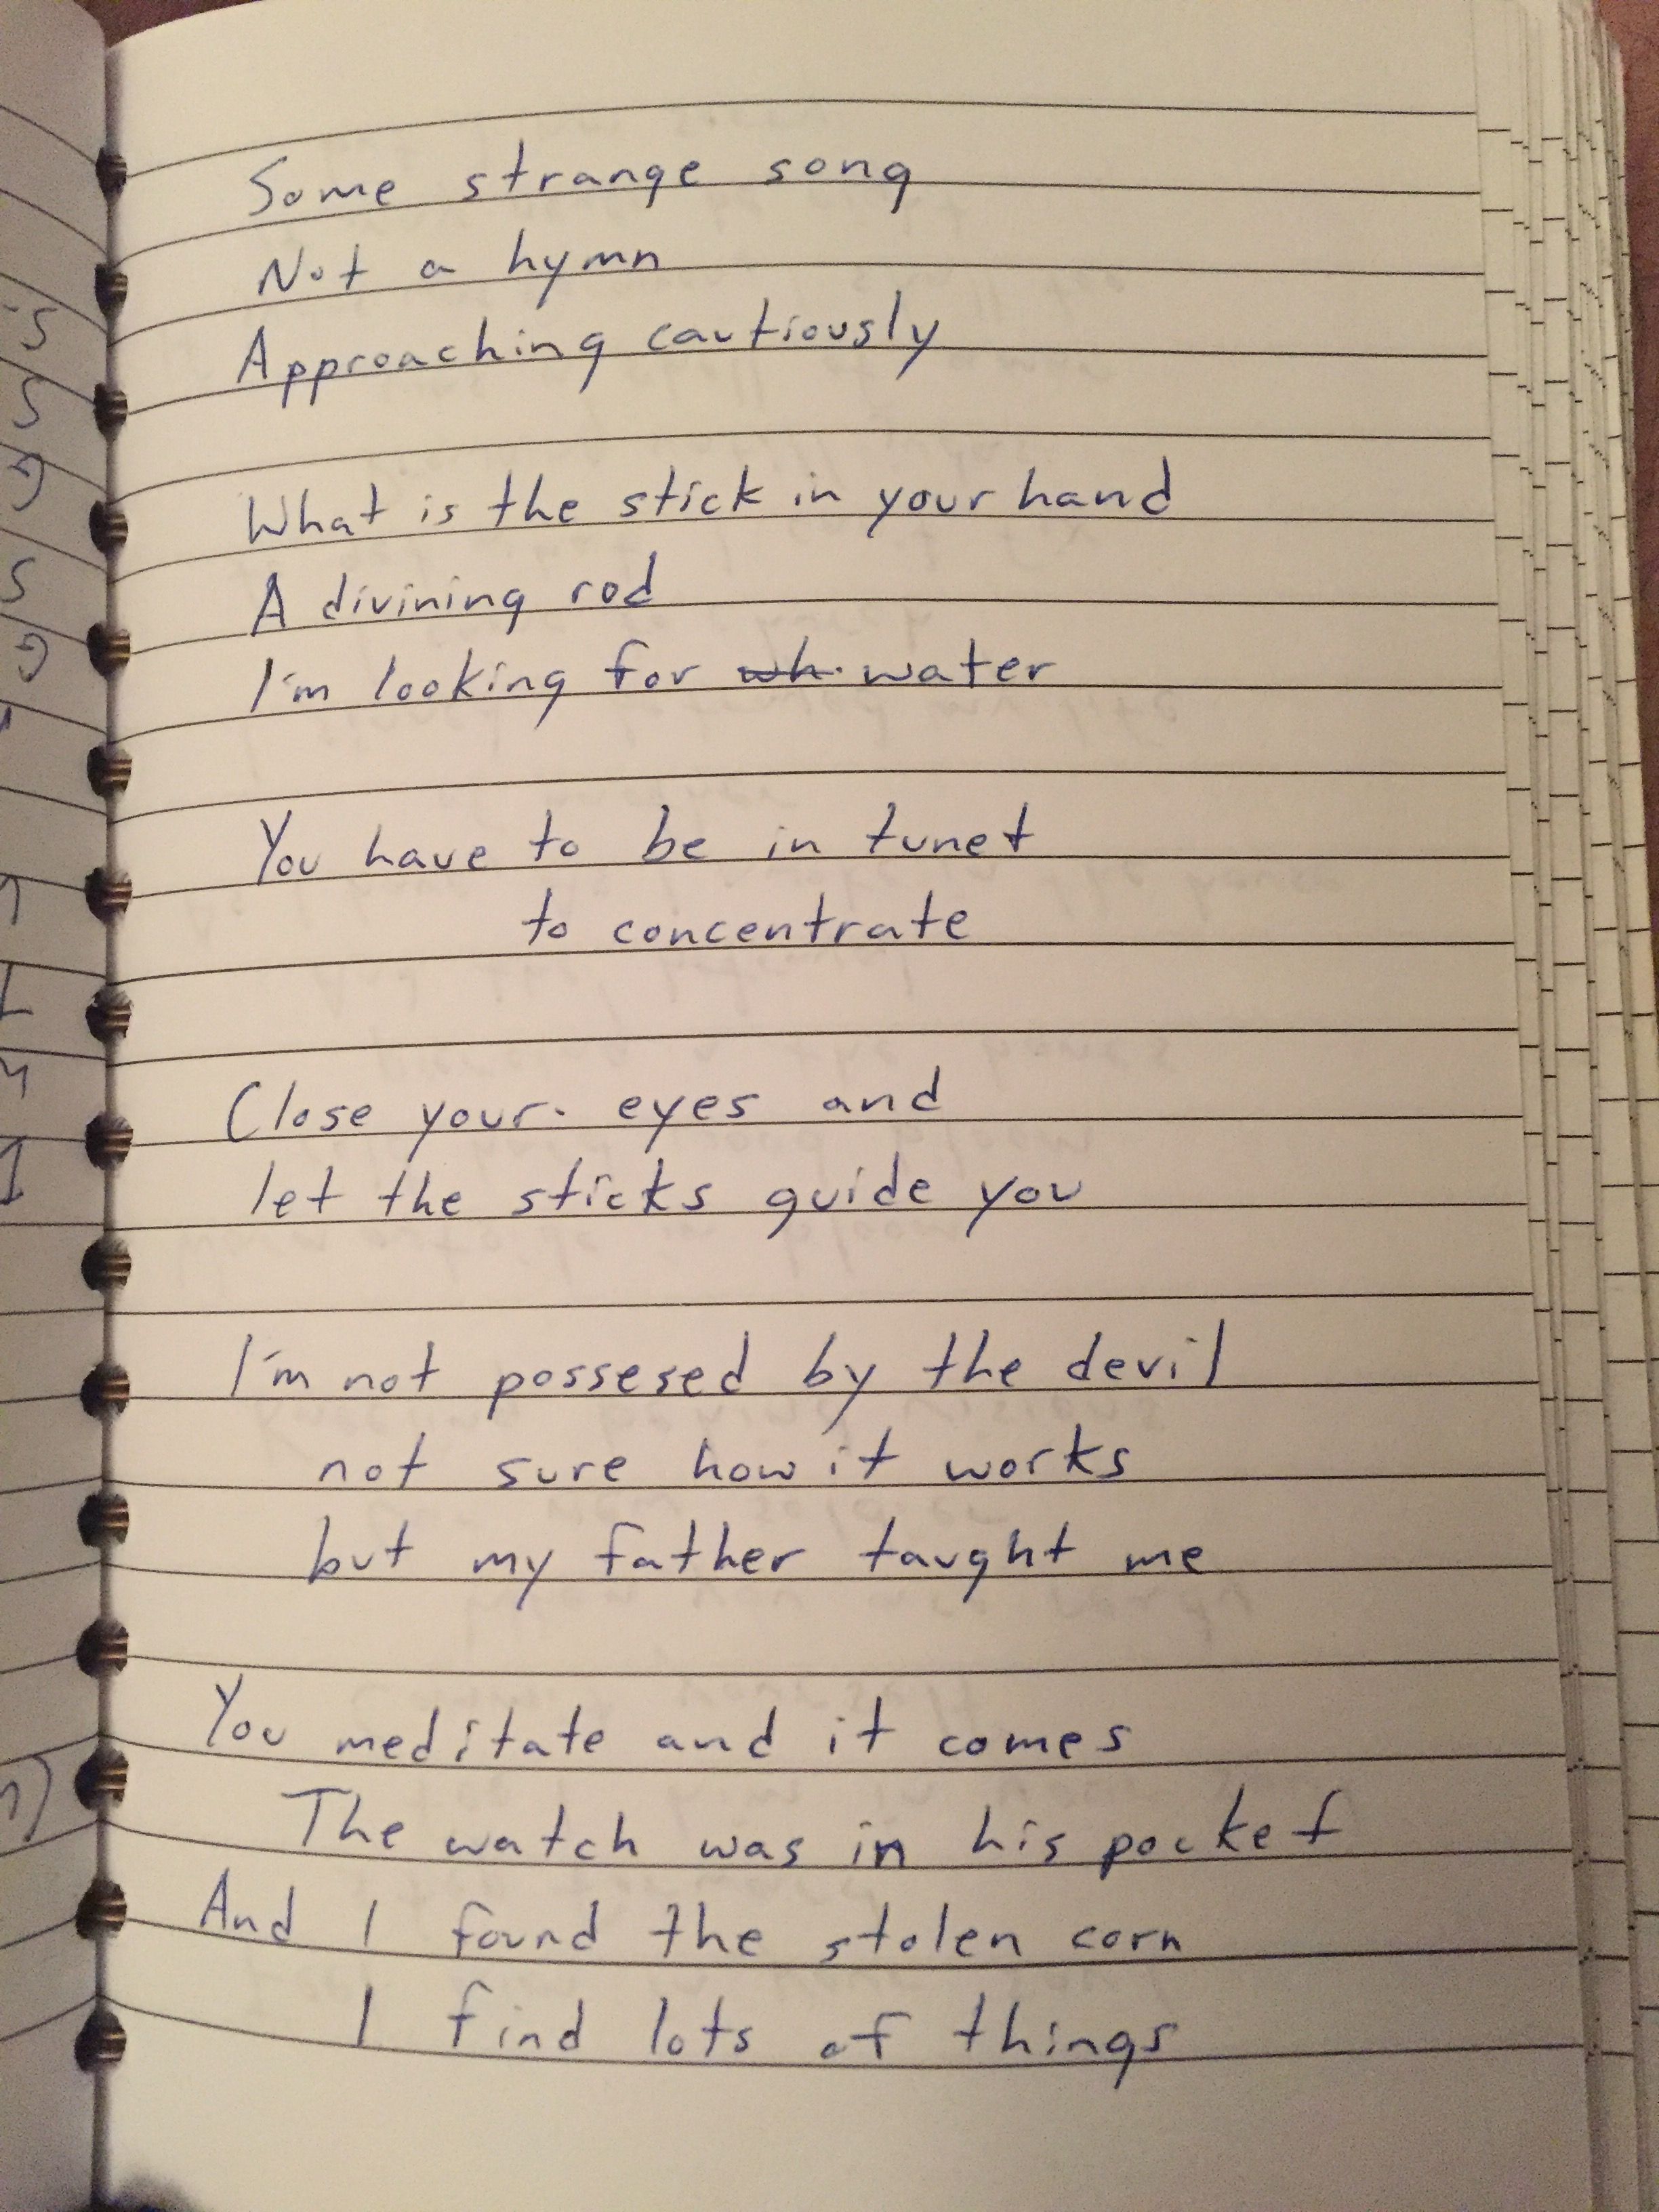 Some strange song
Not a hymn
Approaching cautiously
What is the stick in your hand
A divining rod
I'm looking for wh water
You have to be in tunet
to concentrate
Close your eyes and
let the sticks guide you
I'm not possesed by the devil
not sure how it works
but my father taught me
You meditate and it comes
The watch was in his pocket
And I found the stolen corn
I find lots of things